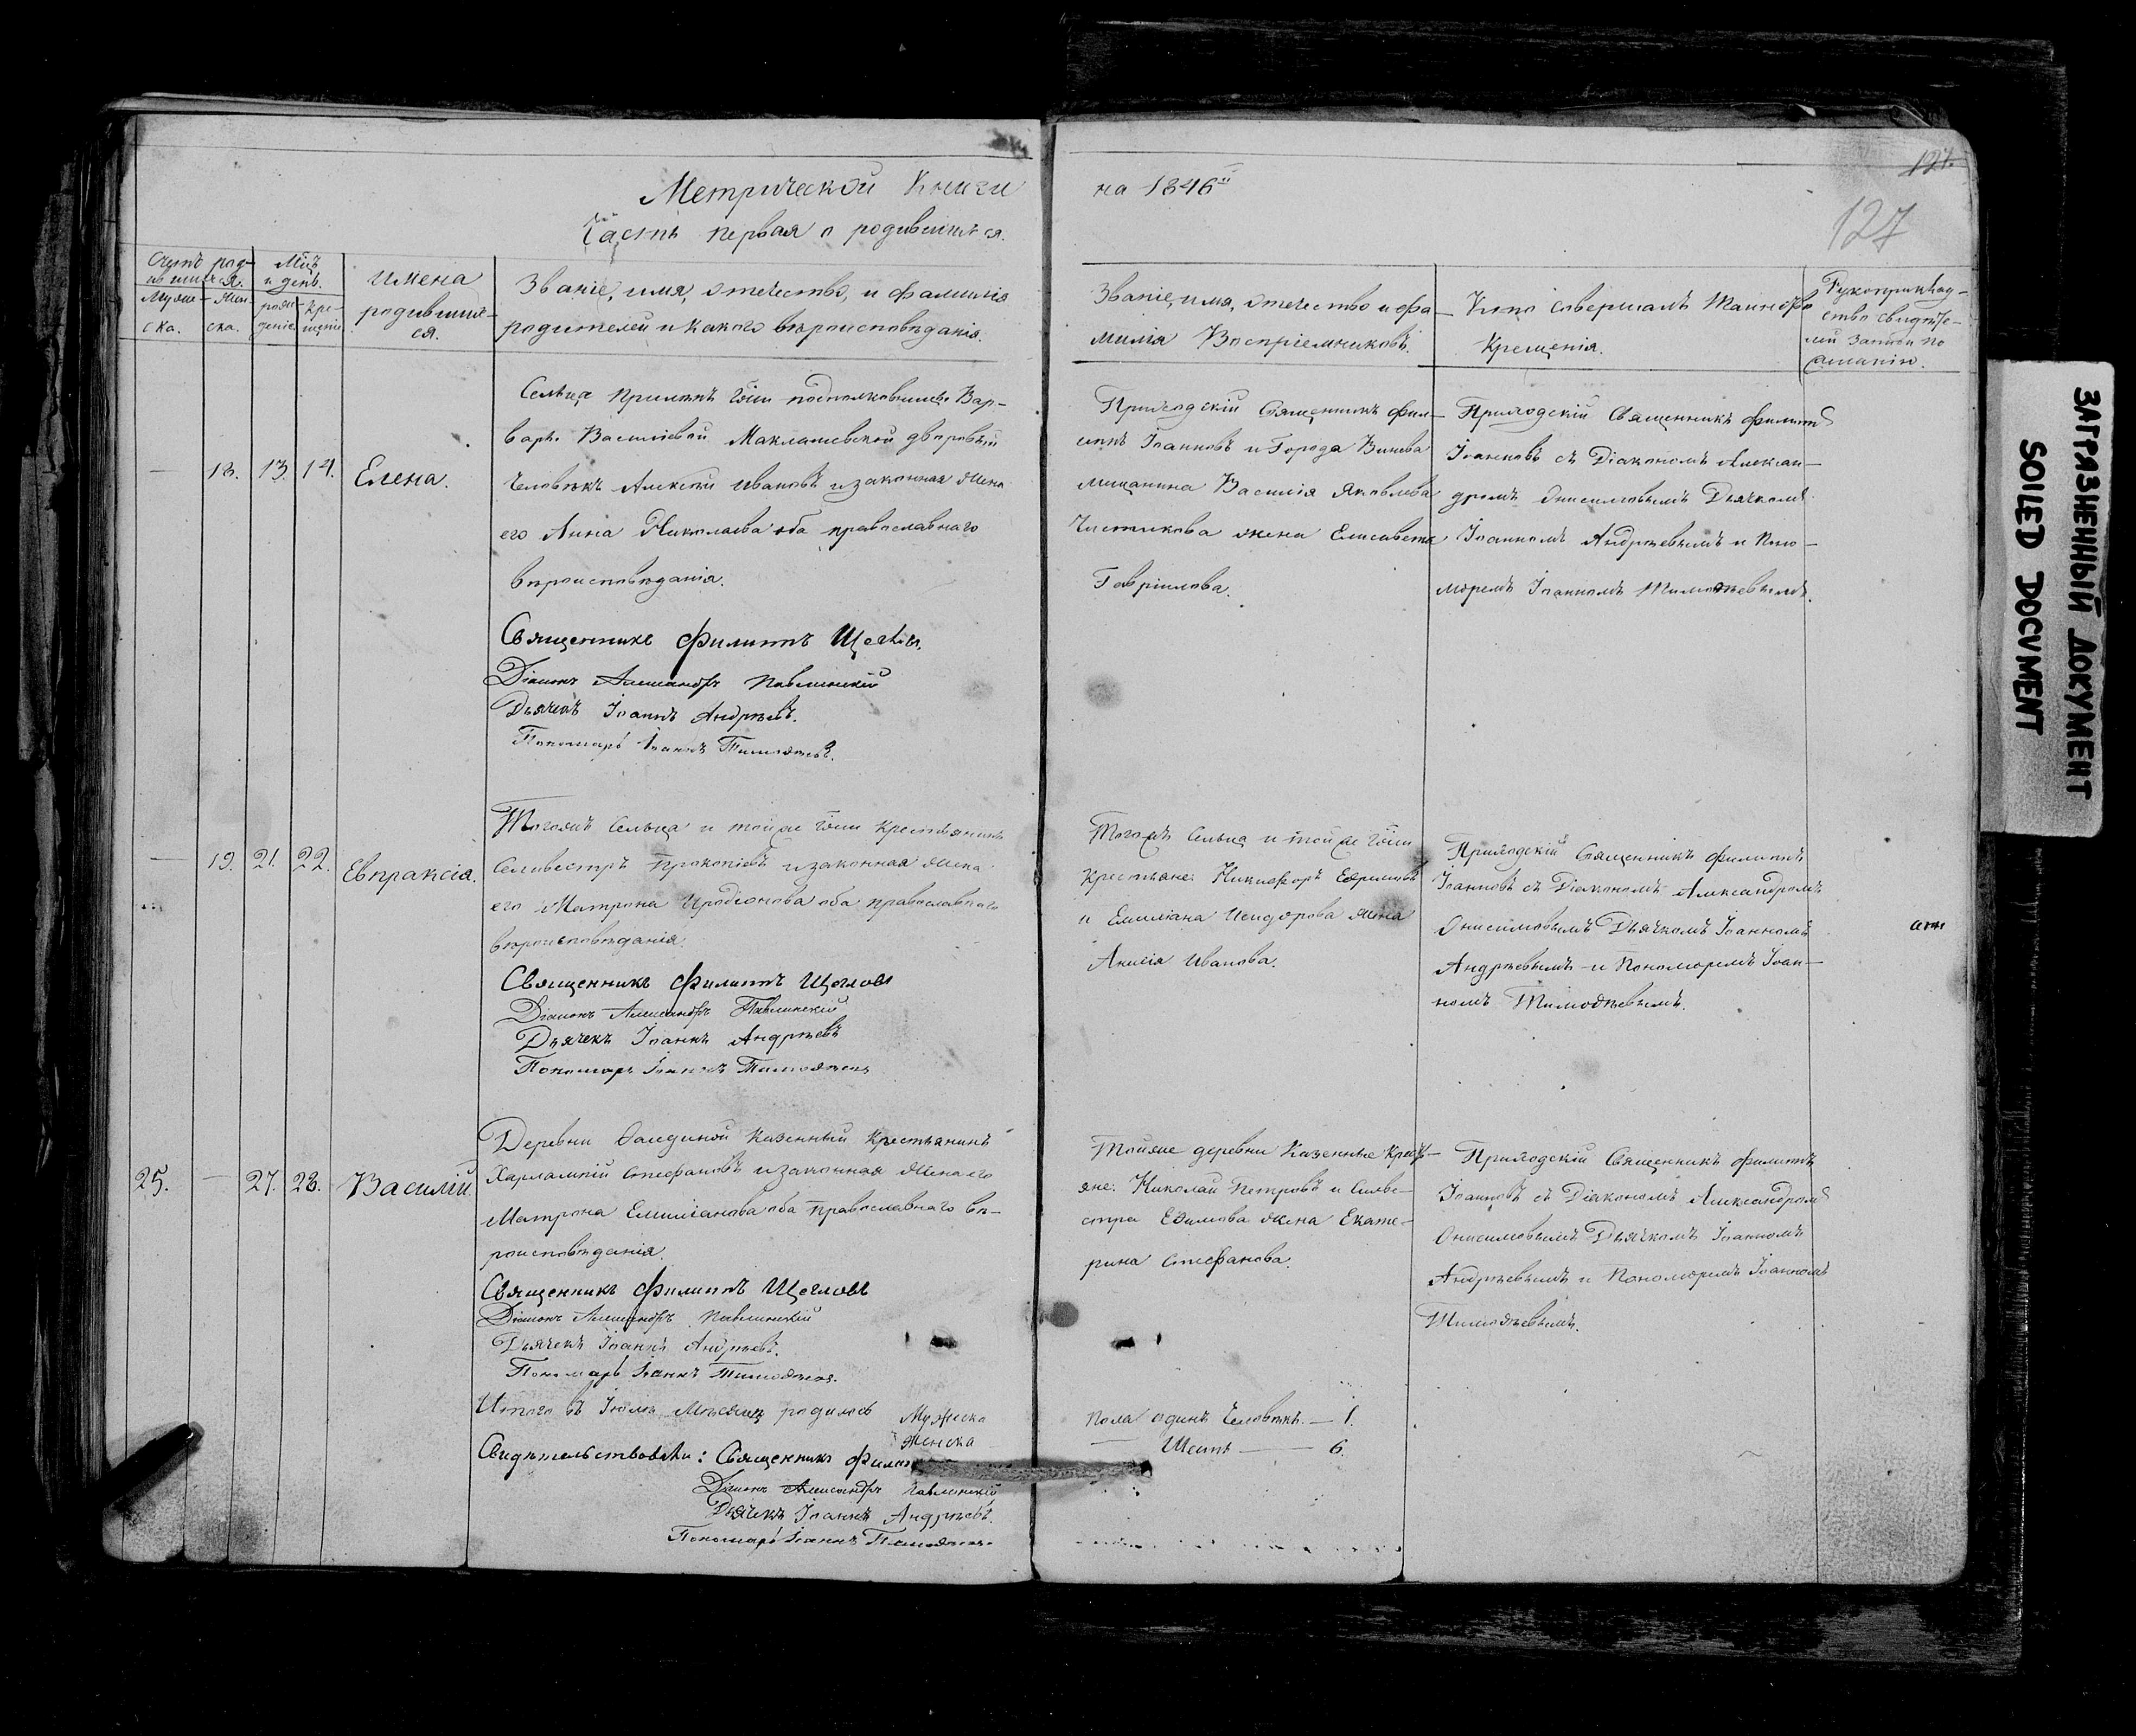 Метрической Книги
Часть первая о родившихся.
на 1846й
127.
127
Счетъ род-
ившихся.
Муже-
ска.
Жен-
ска.
Мцъ
и день.
рож-
денія
кре-
щенія
Имена
родивших-
ся.
Званіе, имя, отечество, и фамилія
родителей и какого вѣроисповѣданія.
Званіе, имя, отечество и фа-
милія Воспріемниковъ.
Кто совершалъ Таинство
Крещенія.
Рукоприклад-
ство свидѣте-
лей записи по
желанію.
— 18. 13. 14. Елена.
Сельца Гжи подполковницы Вар-
вары Васильевой Маклашевской дворовый
человѣкъ Алексѣй Ивановъ и законная жена
его Анна Николаева оба православнаго
вѣроисповѣданія.
Священникъ Филиппъ Щегловъ
Діаконъ Александръ Павлинскій
Дьячекъ Іоаннъ Андрѣевъ.
Пономарь Іоаннъ Тимоѳѣевъ.
Приходскій Священникъ Фил-
иппъ Іоанновъ и Города
мещанина Василія Яковлева
Чистикова жена Елисавета
Гавріилова.
Приходскій Священникъ Филиппъ
Іоанновъ съ Діакономъ Алексан-
дромъ Онисимовымъ Дьячкомъ
Іоанномъ Андрѣевымъ и Поно-
моремъ Іоанномъ Тимоѳѣевымъ.
— 19. 21. 22. Евпраксія.
Тогожъ Сельца и тойже Гжи Крестьянинъ
Селивестръ Прокопіевъ и законная жена
его Матрона Иродіонова оба православнаго
вѣроисповѣданія.
Священникъ Филиппъ Щегловъ
Діаконъ Александръ Павлинскій
Дьячекъ Іоаннъ Андрѣевъ
Пономарь Іоаннъ Тимоѳѣевъ
Тогожъ Сельца и тойже Гжи
Крестьяне: Никифоръ Ефремовъ
и Емиліана Исидорова жена
Анисія Иванова.
Приходскій Священникъ Филиппъ
Іоанновъ съ Діакономъ Александромъ
Онисимовымъ Дьячкомъ Іоанномъ
Андрѣевымъ и Пономоремъ Іоан-
номъ Тимоѳѣевымъ.
25. — 27. 28. Василій.
Деревни Казенный Крестьянинъ
Харлампій Стефановъ и законная жена его
Матрона Емиліанова оба православнаго вѣ-
роисповѣданія.
Священникъ Филиппъ Щегловъ
Діаконъ Александръ Павлинскій
Дьячекъ Іоаннъ Андрѣевъ.
Пономарь Іоаннъ Тимоѳѣевъ.
Тойже деревни Казенные Кресть-
яне: Николай Петровъ и Сильве-
стра Ефимова жена Екате-
рина Стефанова.
Приходскій Священникъ Филиппъ
Іоанновъ съ Діакономъ Александромъ
Онисимовымъ Дьячкомъ Іоанномъ
Андрѣевымъ и Пономоремъ Іоанномъ
Тимоѳѣевымъ.
Итого въ Іюлѣ Мѣсяцѣ родилось Мужеска пола одинъ человѣкъ. — 1.
Женска — Шесть — 6.
Свидѣтельствовали: Священникъ
Діаконъ Александръ Павлинскій
Дьячекъ Іоаннъ Андрѣевъ.
Пономарь Іоаннъ Тимоѳѣевъ
ЗАГРЯЗНЕННЫЙ ДОКУМЕНТ
SOILED DOCUMENT